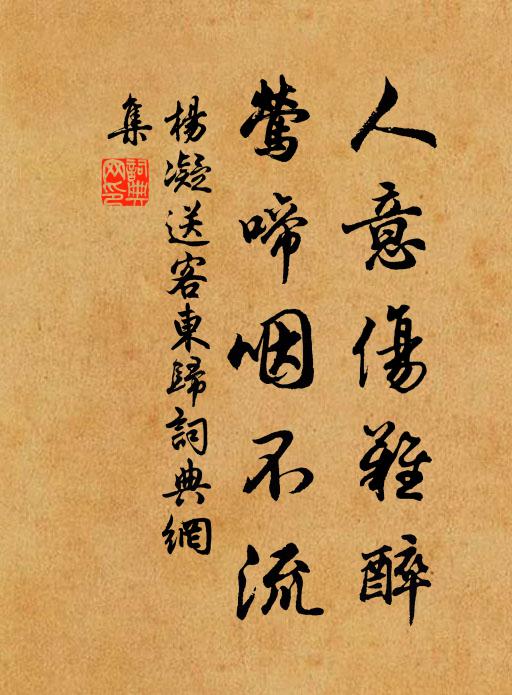 人意傷難醉
鶯啼咽不流
楊凝送客東歸詞典網
集
詞典
网印